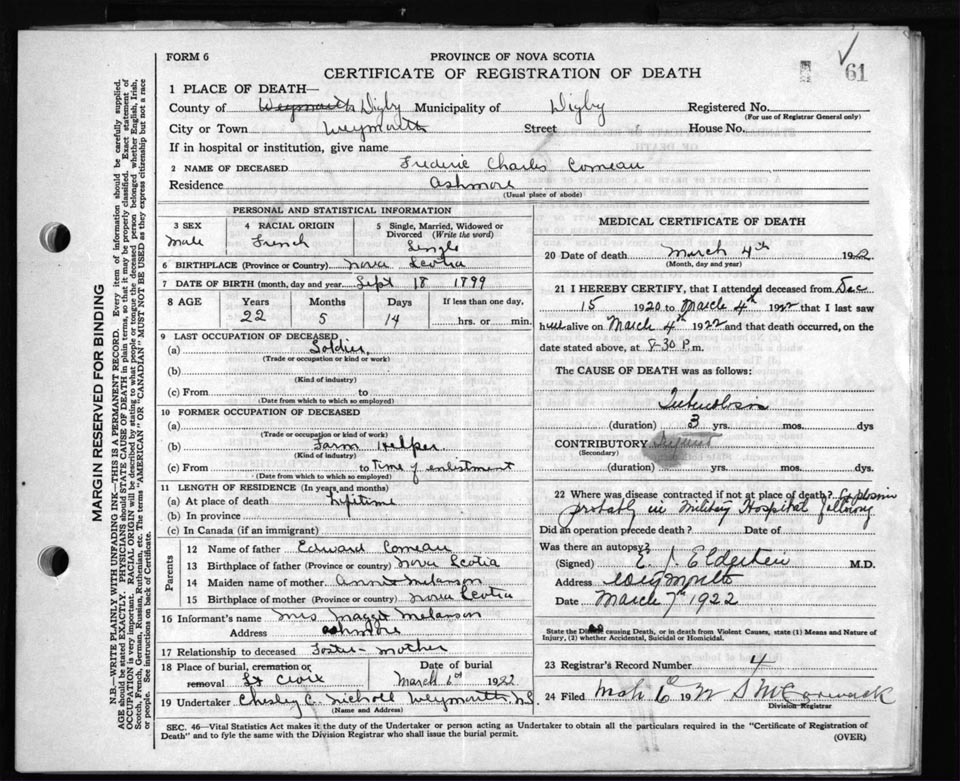 FORM 6
PROVINCE OF NOVA SCOTIA
CERTIFICATE OF REGISTRATION OF DEATH
61
1 PLACE OF DEATH—
County of Weymouth Digby Municipality of Digby Registered No.
(For use of Registrar General only)
City or Town Weymouth Street House No.
If in hospital or institution, give name
2 NAME OF DECEASED Frederic Charles Comeau
Residence Ashmore
(Usual place of abode)
PERSONAL AND STATISTICAL INFORMATION
3 SEX Male
4 RACIAL ORIGIN French
5 Single, Married, Widowed or Divorced (Write the word) Single
6 BIRTHPLACE (Province or Country) Nova Scotia
7 DATE OF BIRTH (month, day and year) Sept 18 1899
8 AGE Years Months Days If less than one day,
22 5 14 hrs. or min.
9 LAST OCCUPATION OF DECEASED
(a) Soldier
(Trade or occupation or kind or work)
(b)
(Kind of industry)
(c) From to
(Date from which to which so employed)
10 FORMER OCCUPATION OF DECEASED
(a)
(Trade or occupation or kind of work)
(b) Farm Helper
(Kind of industry)
(c) From to Time of enlistment
(Date from which to which so employed)
11 LENGTH OF RESIDENCE (In years and months)
(a) At place of death Lifetime
(b) In province
(c) In Canada (if an immigrant)
Parents
12 Name of father Edward Comeau
13 Birthplace of father (Province or country) Nova Scotia
14 Maiden name of mother Annie Melanson
15 Birthplace of mother (Province or country) Nova Scotia
16 Informant's name Mrs Maggie Melanson
Address Ashmore
17 Relationship to deceased Foster-mother
18 Place of burial, cremation or removal St Croix
Date of burial March 6th 1922
19 Undertaker Chesley C. Nichols Weymouth N.S.
(Name and Address)
MEDICAL CERTIFICATE OF DEATH
20 Date of death March 4th 1922
(Month, day and year)
21 I HEREBY CERTIFY, that I attended deceased from Dec
15 1920 to March 4th 1922 that I last saw
him alive on March 4th 1922 and that death occurred, on the
date stated above, at 8-30 P.m.
The CAUSE OF DEATH was as follows:
Tuberculosis
(duration) 3 yrs. mos. dys
CONTRIBUTORY
(Secondary)
(duration) yrs. mos. dys.
22 Where was disease contracted if not at place of death? Explosion
probably in Military Hospital following
Did an operation precede death? Date of
Was there an autopsy?
(Signed) E. J. M.D.
Address Weymouth
Date March 7th 1922
State the Disease causing Death, or in death from Violent Causes, state (1) Means and Nature of
Injury, (2) whether Accidental, Suicidal or Homicidal.
23 Registrar's Record Number 4
24 Filed Mch 6 1922 S McCormack
Division Registrar
SEC. 46—Vital Statistics Act makes it the duty of the Undertaker or person acting as Undertaker to obtain all the particulars required in the "Certificate of Registration of
Death" and to fyle the same with the Division Registrar who shall issue the burial permit.
(OVER)
MARGIN RESERVED FOR BINDING
N.B.—WRITE PLAINLY WITH UNFADING INK—THIS IS A PERMANENT RECORD. Every item of information should be carefully supplied.
AGE should be stated EXACTLY. PHYSICIANS should STATE CAUSE OF DEATH in plain terms, so that it may be properly classified. Exact statement of
OCCUPATION is very important. RACIAL ORIGIN will be described by stating to what people or tongue the deceased person belonged whether English, Irish,
Scotch, French, German, Russian, Ruthenian, etc. The terms "AMERICAN" or "CANADIAN" MUST NOT BE USED as they express citizenship but not a race
or people. See instructions on back of Certificate.